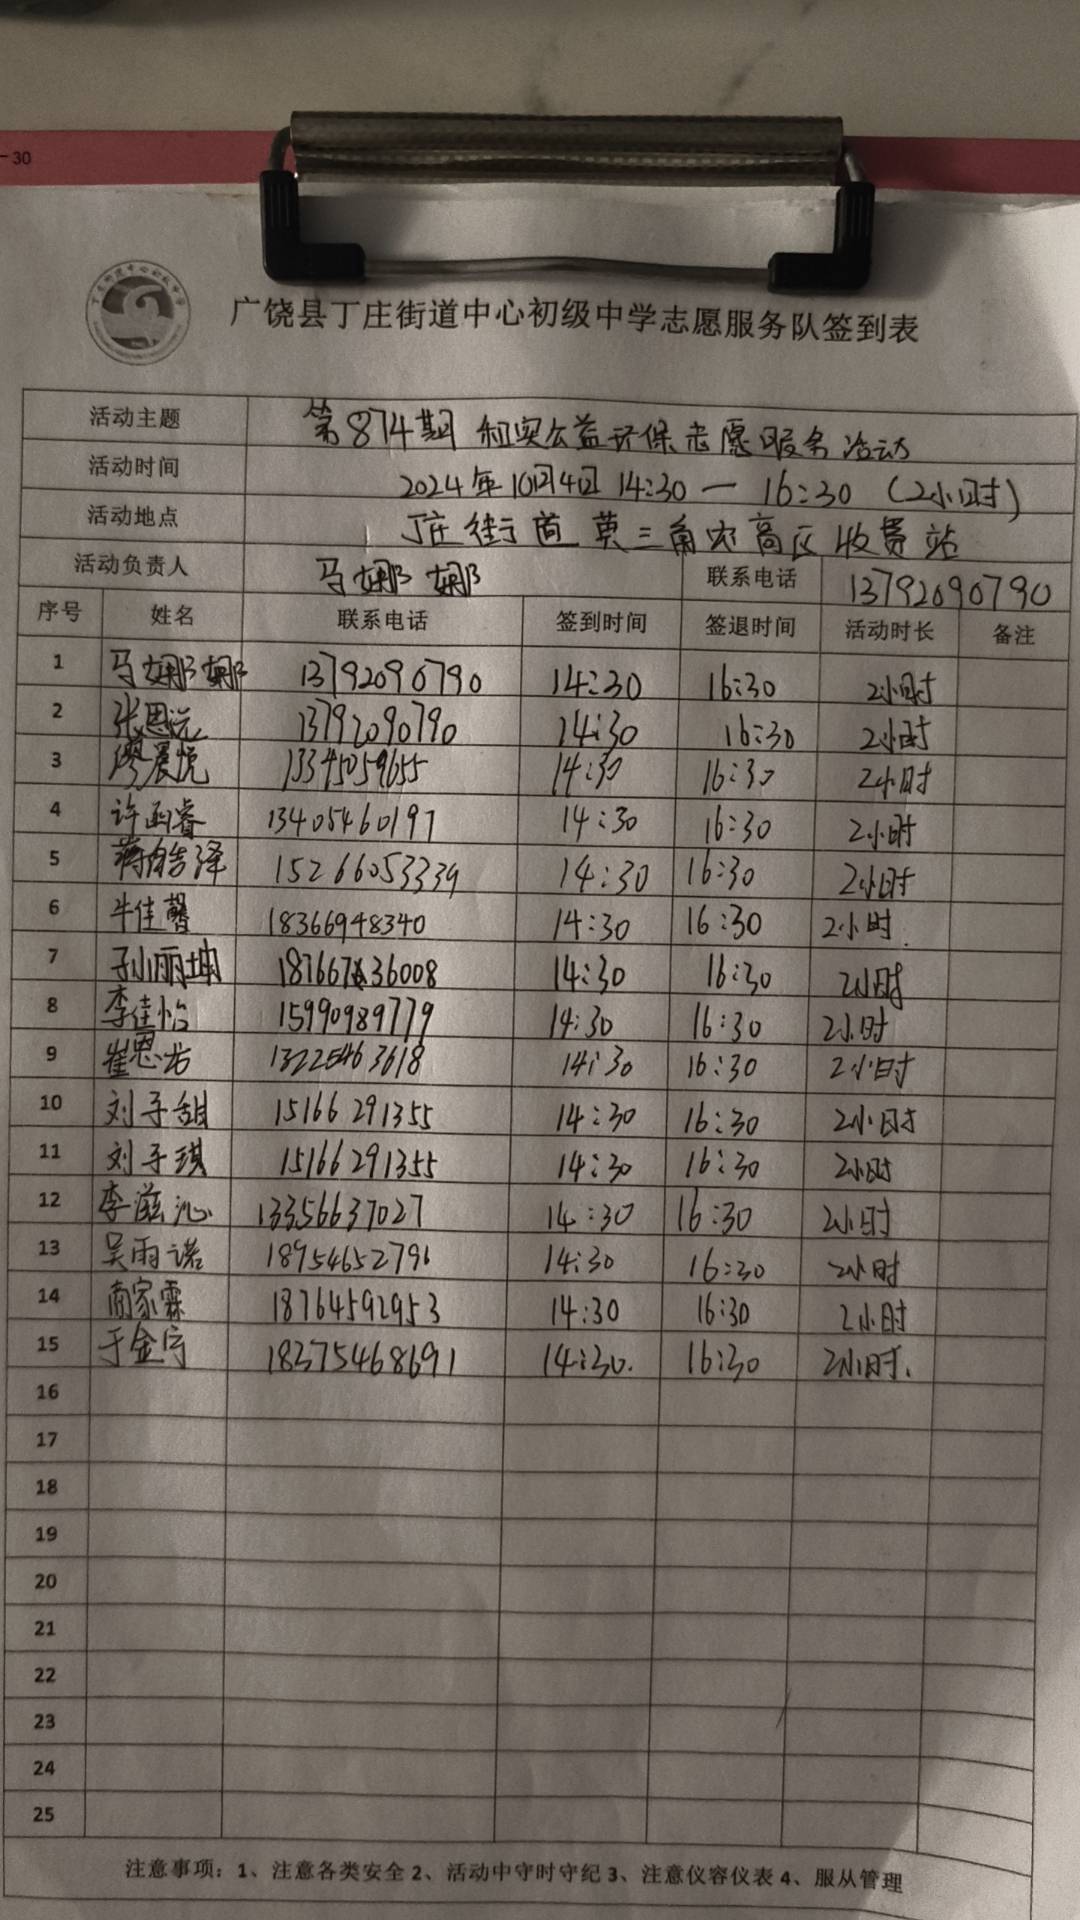 -30
广饶县丁庄街道中心初级中学志愿服务队签到表
活动主题 第874期 和奥公益环保志愿服务活动
活动时间 2024年10月4日 14:30一16:30 (2小时)
活动地点 丁庄街道黄三角农高区收费站
活动负责人 马娜娜 联系电话 13792090790
序号 姓名 联系电话 签到时间 签退时间 活动时长 备注
1 马娜娜 13792090790 14:30 16:30 2小时
2 张思远 13792090790 14:30 16:30 2小时
3 廖晨悦 13345059655 14:30 16:30 2小时
4 许函睿 13405460197 14:30 16:30 2小时
5 蒋皓泽 15266053339 14:30 16:30 2小时
6 牛佳馨 18366948340 14:30 16:30 2小时.
7 孙丽坤 18766736008 14:30 16:30 2小时
8 李佳怡 15990989779 14:30 16:30 2小时
9 崔恩 13225463618 14:30 16:30 2小时
10 刘子甜 15166291355 14:30 16:30 2小时
11 刘子琪 15166291355 14:30 16:30 2小时
12 李滋沁 13356637027 14:30 16:30 2小时
13 吴雨诺 18954652796 14:30 16:30 2小时
14 商家霖 18764592953 14:30 16:30 2小时
15 于金宇 18375468691 14:30. 16:30 2小时.
16
17
18
19
20
21
22
23
24
25
注意事项：1、注意各类安全 2、活动中守时守纪 3、注意仪容仪表 4、服从管理